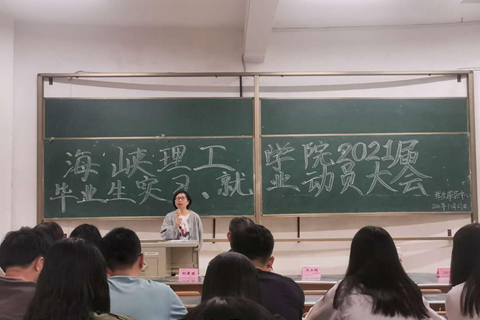 海峡理工学院2021届
毕业生实习、就业动员大会